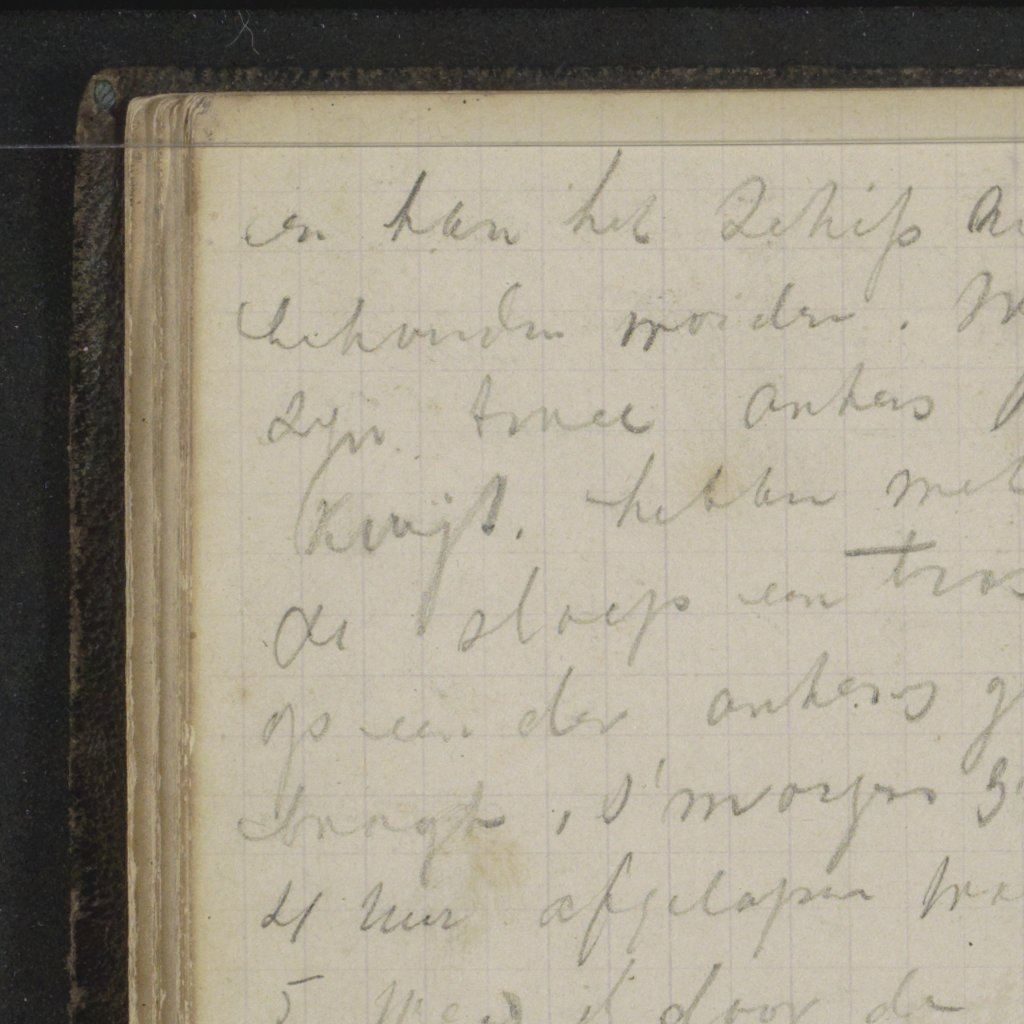 en kan het Schip
behouden worden.
zyn twee ankers
Kwijt, hebben met
de sloep een tros
op een der ankers
bragt, s'morgens
4 uur afgelopen
5 Werd ik door de